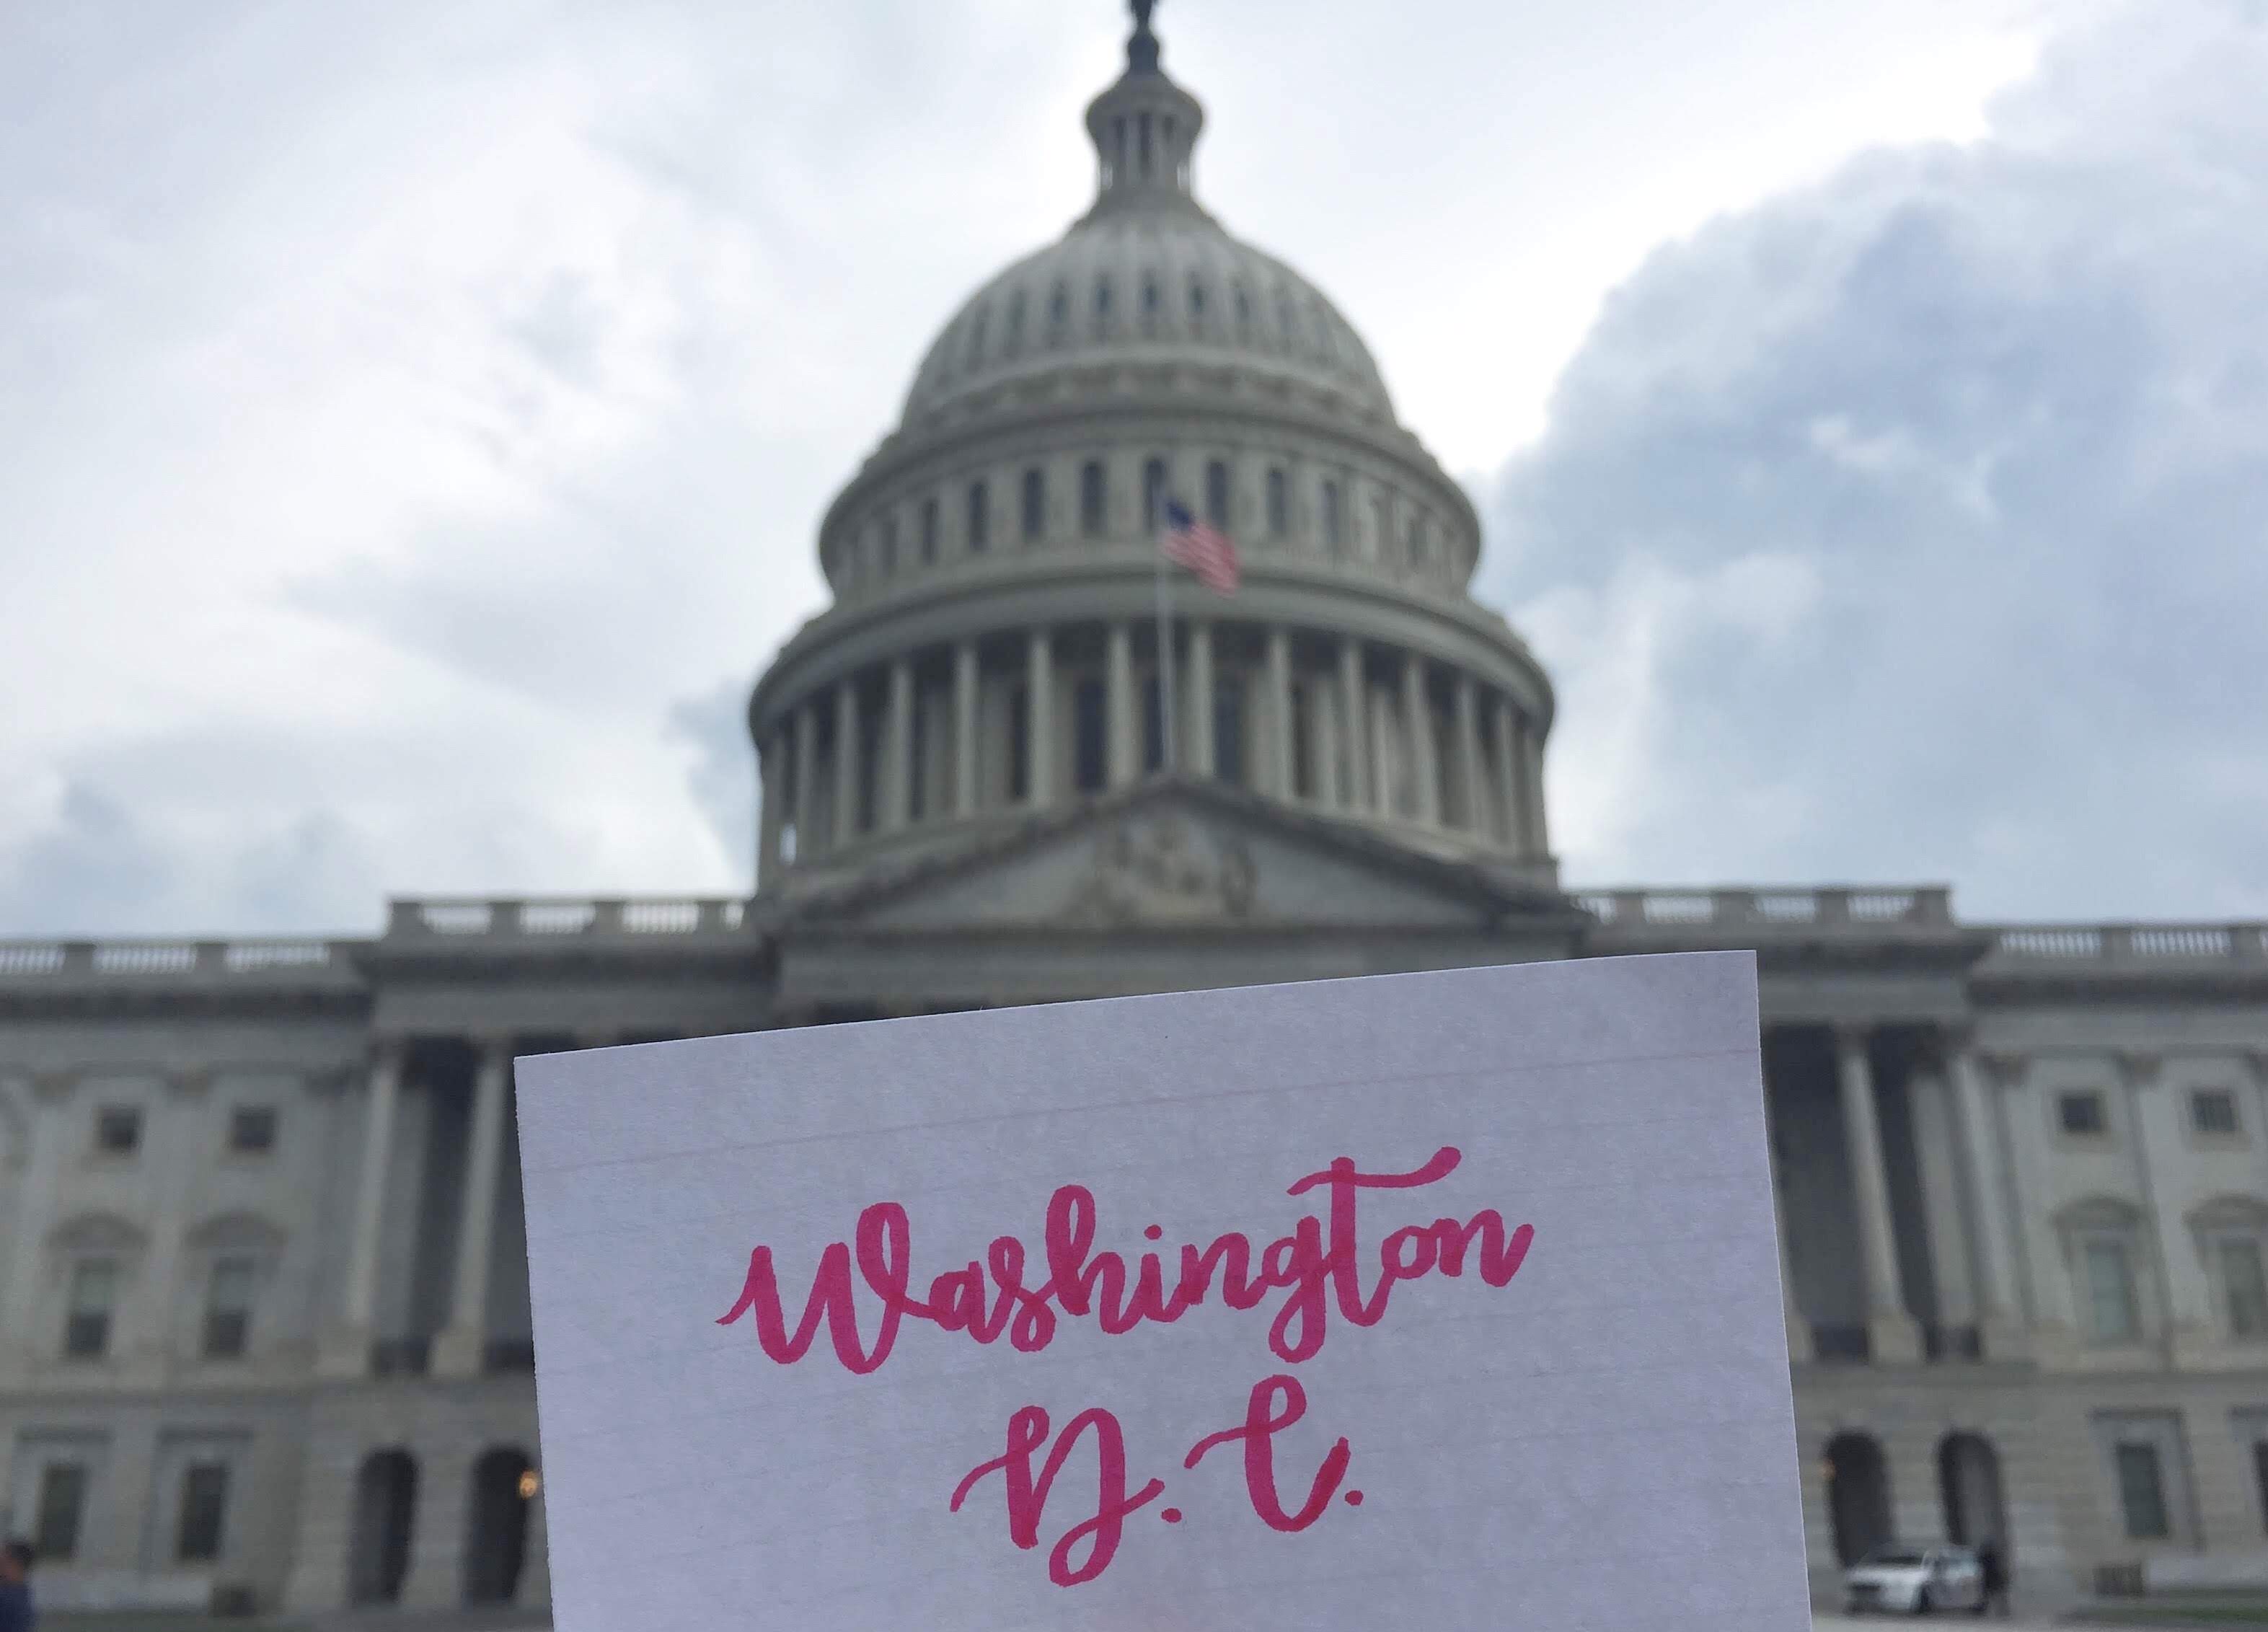 Washington
D.C.